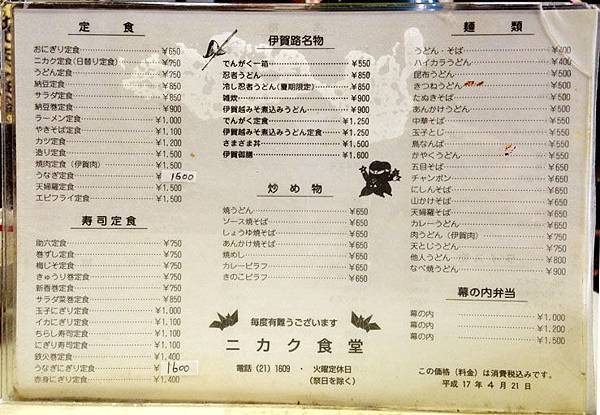 定食
おにぎり定食 ¥650
ニカク定食(日替り定食) ¥750
うどん定食 ¥750
納豆定食 ¥850
サラダ定食 ¥850
納豆巻定食 ¥900
ラーメン定食 ¥1,000
やきそば定食 ¥1,100
カツ定食 ¥1,200
造り定食 ¥1,500
焼肉定食(伊賀肉) ¥1,500
うなぎ定食 ¥1600
天婦羅定食 ¥1,500
エビフライ定食 ¥1,500
寿司定食
助六定食 ¥750
巻ずし定食 ¥750
梅じそ定食 ¥750
きゅうり巻定食 ¥750
新香巻定食 ¥750
サラダ菜巻定食 ¥850
玉子にぎり定食 ¥1,000
イカにぎり定食 ¥1,100
ちらし寿司定食 ¥1,100
にぎり寿司定食 ¥1,100
鉄火巻定食 ¥1,400
うなぎにぎり定食 ¥1600
赤身にぎり定食 ¥1,400
伊賀路名物
でんがく一箱 ¥550
忍者うどん ¥850
冷し忍者うどん(夏期限定) ¥850
雑炊 ¥900
伊賀越みそ煮込みうどん ¥900
でんがく定食 ¥1,250
伊賀越みそ煮込みうどん定食 ¥1,250
さまざま丼 ¥1,500
伊賀御膳 ¥1,600
炒め物
焼うどん ¥650
ソース焼そば ¥650
しょうゆ焼そば ¥650
あんかけ焼そば ¥650
焼めし ¥650
カレーピラフ ¥650
きのこピラフ ¥650
毎度有難うございます
ニカク食堂
電話(21)1609 ・ 火曜定休日
(祭日を除く)
麺類
うどん・そば ¥400
ハイカラうどん ¥400
昆布うどん ¥500
きつねうどん ¥500
たぬきそば ¥500
あんかけうどん ¥500
中華そば ¥550
玉子とじ ¥550
鳥なんば ¥550
かやくうどん ¥550
五目そば ¥650
チャンポン ¥650
にしんそば ¥650
山かけそば ¥650
天婦羅そば ¥650
カレーうどん ¥650
肉うどん(伊賀肉) ¥750
天とじうどん ¥750
他人うどん ¥800
なべ焼うどん ¥900
幕の内弁当
幕の内 ¥1,000
幕の内 ¥1,200
幕の内 ¥1,500
この価格(料金)は消費税込みです。
平成17年4月21日